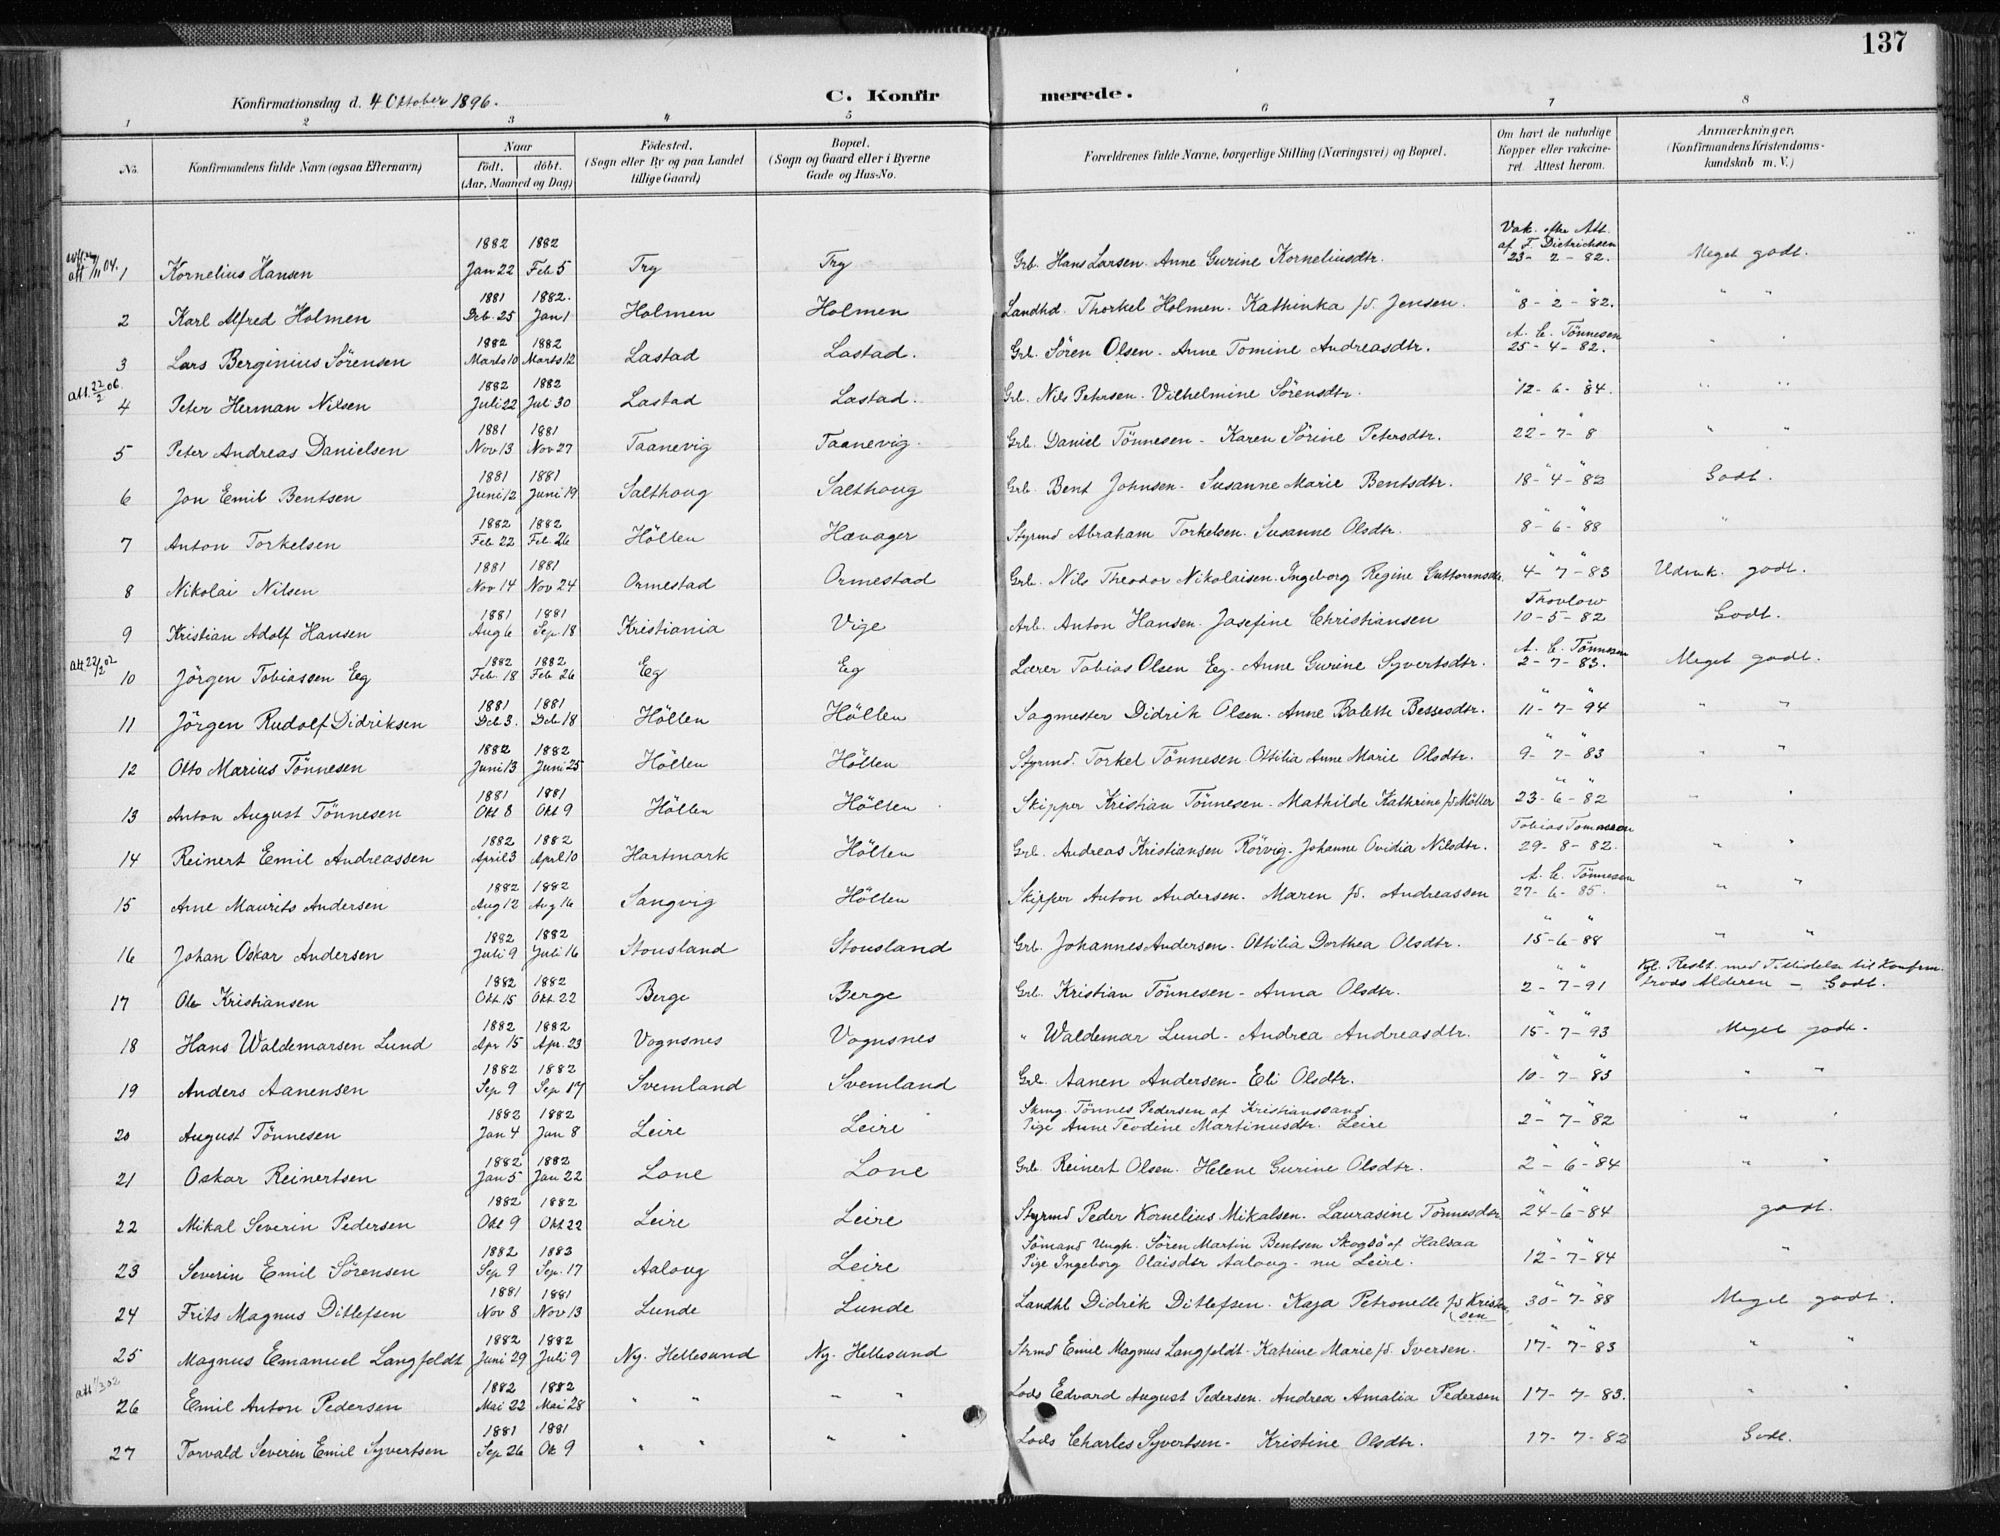 137
Konfirmationsdag d. 4 Oktober 1896.
C. Konfirmerede.
1 2 3 4 5 6 7 8
No.
Konfirmandens fulde Navn (ogsaa Efternavn)
Naar
født. døbt.
(Aar, Maaned og Dag)
Fødested.
(Sogn eller By og paa Landet
tillige Gaard)
Bopæl.
(Sogn og Gaard eller i Byerne
Gade og Hus-No.
Forældrenes fulde Navne, borgerlige Stilling (Næringsvei) og Bopæl.
Om havt de naturlige
Kopper eller vakcine-
ret. Attest herom.
Anmærkninger.
(Konfirmandens Kristendoms-
kundskab m. V.)
Vak. efter Att.
1882 1882 af F. Dietrichsen
1 Kornelius Hansen Jan 22 Feb. 5 Try Try Grb. Hans Larsen. Anne Gurine Korneliusdtr. 23-2-82. Meget godt.
1881 1882.
2 Karl Alfred Holmen Deb. 25 Jan 1 Holmen Holmen Landhd. Thorkel Holmen. Kathinka f/d. Jensen. 8-2-82. " "
1882 1882 A. C. Tönnesen
3 Lars Berginius Sörensen Marts 10 Marts 12 Lastad Lastad. Grb. Sören Olsen. Anne Tomine Andreasdtr. 25-4-82. " "
att. 22/2 06.
1882 1882
4 Peter Herman Nilsen Juli 22 Jul 30 Lastad Lastad. Grb. Nils Petersen. Vilhelmine Sörensdtr. 12-6-84. " "
1881 1881
5 Peter Andreas Danielsen Nov 13 Nov 27 Taanevig Taanevig. Grb. Daniel Tönnesen - Karen Sörine Petersdtr. 22-7-8 " "
1881 1881
6 Jon Emil Bentsen Juni 12 Juni 19 Salthoug Salthoug Grb. Bent Johnsen. Susanne Marie Bentsdtr. 18-4-82 Godt.
1882 1882
7 Anton Torkelsen Feb. 22 Feb. 26 Höllen Hævager Styrmd Abraham Torkelsen. Susanne Olsdtr. 8-6-88 "
1881 1881
8 Nikolai Nilsen Nov 14 Nov 24 Ormestad Ormestad Grb. Nils Theodor Nikolaisen. Ingeborg Regine Guttormsdtr. 4-7-83 Udmk. godt.
1881 1881
9 Kristian Adolf Hansen Aug 6 Sep. 18 Kristiania Vige Arb. Anton Hansen. Josefine Christiansen 10-5-82 Godt.
att. 22/2 02
1882 1882 A. C. Tönnesen
10 Jörgen Tobiassen Eeg Feb. 18 Feb 26 Eg Eg Lærer Tobias Olsen Eeg. Anne Gurine Syvertsdtr. 2-7-83. Meget godt.
1881 1881
11 Jörgen Rudolf Didriksen Deb 3. Deb 18 Höllen Höllen Sagmester Didrik Olsen. Anne Bolette Bessesdtr. 11-7-94 " "
1882 1882
12 Otto Marius Tönnesen Juni 13 Juni 25 Höllen Höllen Styrmd. Torkel Tönnesen Ottilia Anne Marie Olsdtr. 9-7-83 " "
1881 1881
13 Anton August Tönnesen Okt 8 Okt 9 Höllen Höllen Skipper Kristian Tönnesen. Mathilde Kathrine f/d Möller 23-6-82 " "
1882 1882
14 Reinert Emil Andreassen April 3 April 10 Hartmark Höllen Grb. Andreas Kristiansen Rörvig. Johanne Ovidia Nilsdtr. 29-8-82. " "
1882 1882 A. C. Tönnesen
15 Arne Maurits Andersen Aug 12 Aug 16 Sangvig Höllen Skipper Anton Andersen. Maren f/d. Andreassen 27-6-85. " "
1882 1882
16 Johan Oskar Andersen Juli 9 Juli 16 Stousland Stousland Grb. Johannes Andersen. Ottilia Dorthea Olsdtr. 15-6-88 " "
1882 1882 Kgl. Reslt. med Tilladelse til Konfirm.
17 Ole Kristiansen Okt. 15 Okt. 22 Berge Berge Grb. Kristian Tönnesen - Anna Olsdtr. 2-7-91 trods Alderen - Godt.
1882 1882
18 Hans Waldemarsen Lund Apr 15 Apr. 23 Vognsnes Vognsnes " Waldemar Lund. Andrea Andreasdtr. 15-7-93 Meget godt.
1882 1882
19 Anders Aanensen Sep 9 Sep 17 Svemland Svemland Grb. Aanen Andersen - Eli Olsdtr. 10-7-83 " "
1882 1882 Tönnes Pedersen af Kristianssand
20 August Tönnesen Jan 4 Jan 8 Leire Leire Pige Anne Teodine Martinusdtr. Leire 2-7-82 " "
1882 1882
21 Oskar Reinertsen Jan 5 Jan 22 Lone Lone Grb. Reinert Olsen. Helene Gurine Olsdtr. 2-6-84 " "
1882 1882
22 Mikal Severin Pedersen Okt 9 Okt 22 Leire Leire Styrmd Peder Kornelius Mikalsen. Laurasine Tönnesdtr 24-6-84 godt.
1882 1883 Sömand Ungk. Sören Martin Bentsen Skogsö af Halsaa
23 Severin Emil Sörensen Sep 9 Sep. 17 Aaloug Leire Pige Ingeborg Olaisdtr Aaloug - nu Leire. 12-7-84 "
1881 1881
24 Frits Magnus Ditlefsen Nov 8 Nov 13 Lunde Lunde Landhl Didrik Ditlefsen. Kaja Petronelle f/d Kristensen 30-7-88 Meget godt.
1882 1882
25 Magnus Emanuel Langfeldt Juni 29 Juli 9 Ny. Hellesund Ny. Hellesund Strmd Emil Magnus Langfeldt. Katrine Marie f/d. Iversen. 17-7-83 " "
1882 1882
26 Emil Anton Pedersen Mai 22 Mai 28 " " " " Lods Edvard August Pedersen. Andrea Amalia Pedersen 17-7-83. " "
1881 1881
27 Torvald Severin Emil Syvertsen Sep 26 Ok 9 " " " " Lods Charles Syvertsen - Kristine Olsdtr. 17-7-82 Godt.